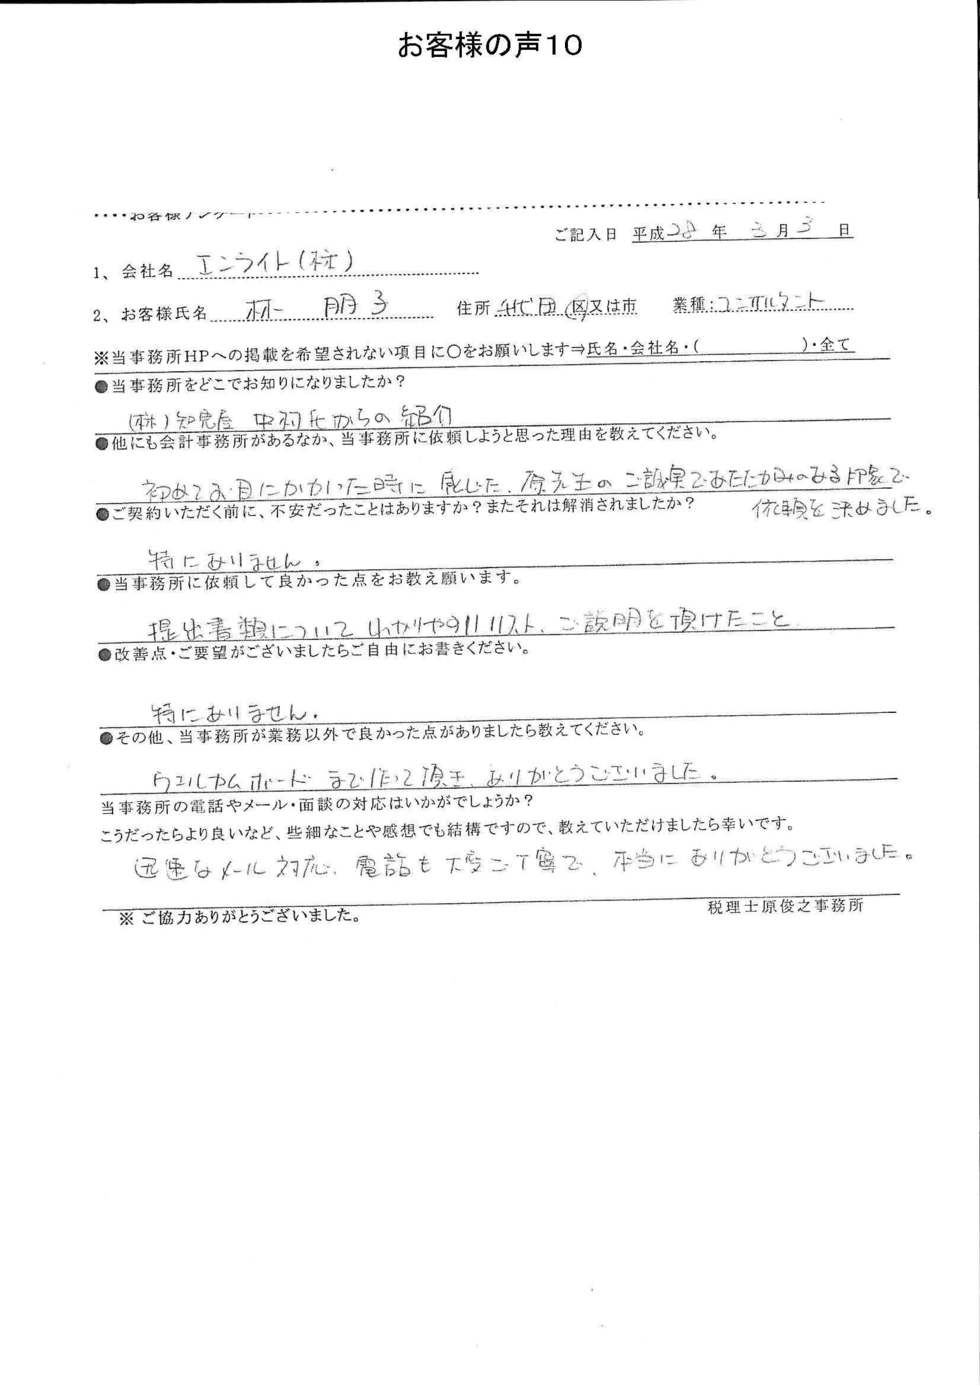 お客様の声10
‥‥お客様アンケート
ご記入日 平成28年 3月3日
1、会社名 エンライト(株)
2、お客様氏名 林 朋子 住所 千代田区又は市 業種:コンサルタント
※当事務所HPへの掲載を希望されない項目に〇をお願いします⇒氏名・会社名・( )・全て
●当事務所をどこでお知りになりましたか?
(株)知完 中村氏からの紹介
●他にも会計事務所があるなか、当事務所に依頼しようと思った理由を教えてください。
初めてお目にかかった時に感じた、原先生のご誠実であたたかみのある印象で
依頼を決めました。
●ご契約いただく前に、不安だったことはありますか?またそれは解消されましたか?
特にありません。
●当事務所に依頼して良かった点をお教え願います。
提出書類についてわかりやすいリスト、ご説明を頂けたこと
●改善点・ご要望がございましたらご自由にお書きください。
特にありません。
●その他、当事務所が業務以外で良かった点がありましたら教えてください。
ウェルカムボードまで作って頂き、ありがとうございました。
当事務所の電話やメール・面談の対応はいかがでしょうか?
こうだったらより良いなど、些細なことや感想でも結構ですので、教えていただけましたら幸いです。
迅速なメール対応、電話も大変ご丁寧で、本当にありがとうございました。
税理士原俊之事務所
※ご協力ありがとうございました。